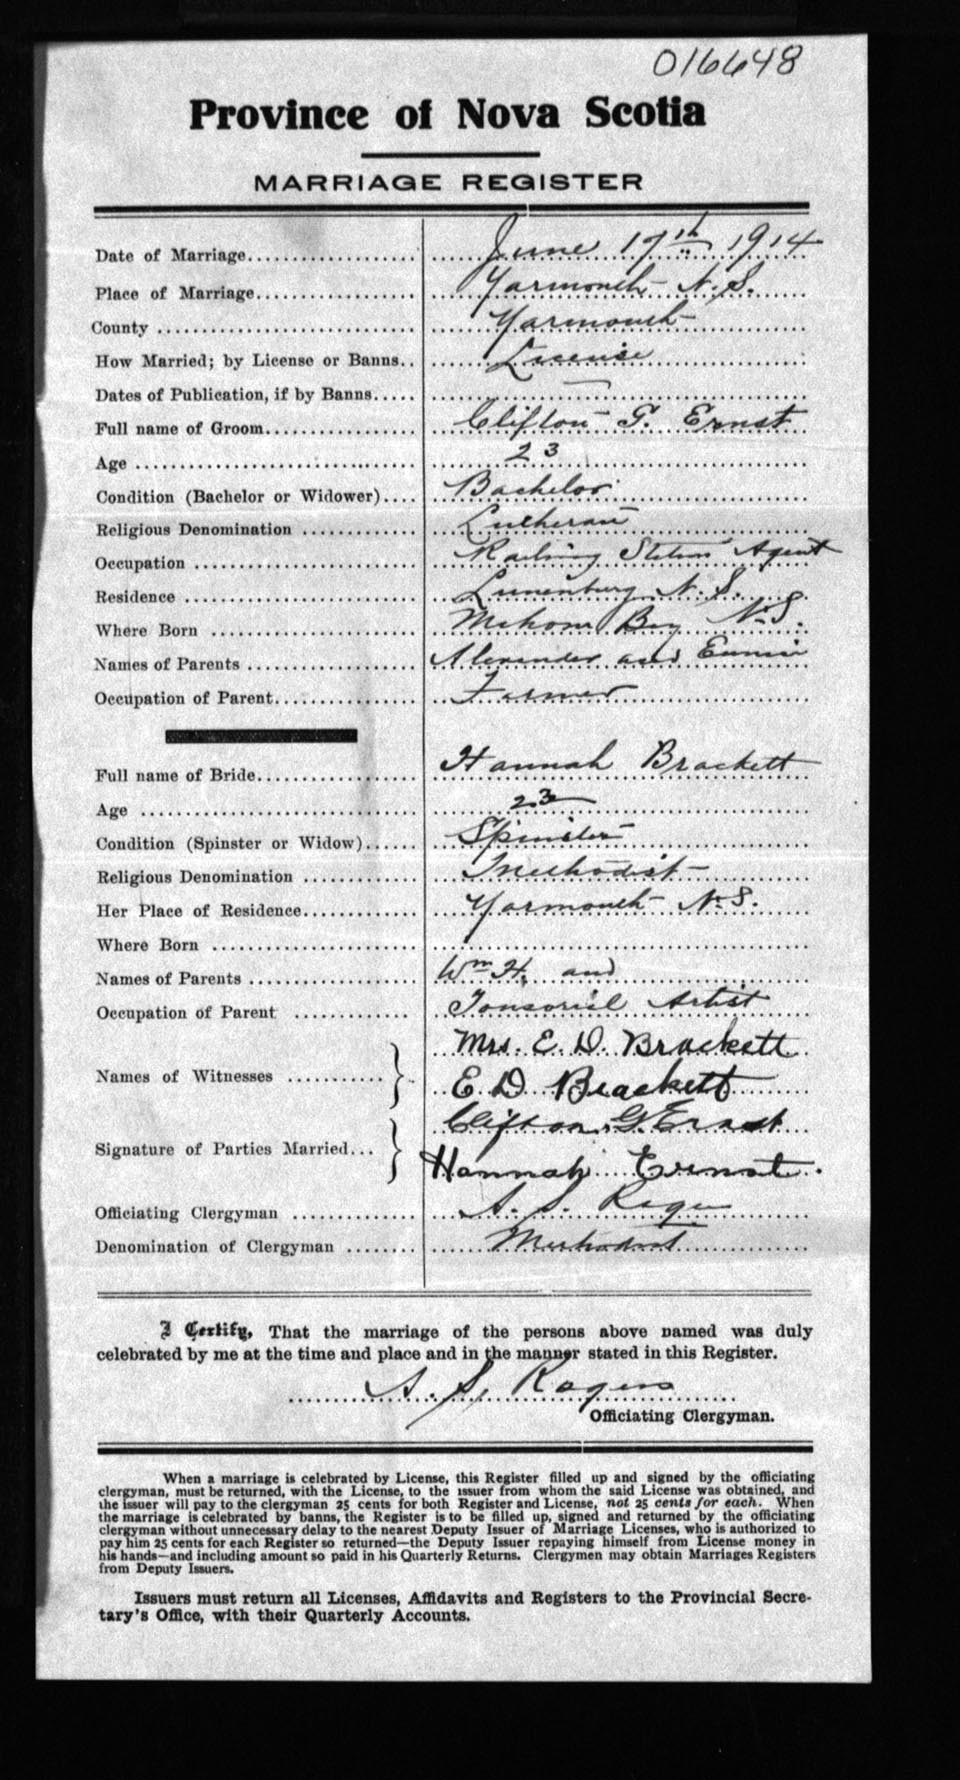 016648
Province of Nova Scotia
MARRIAGE REGISTER
Date of Marriage.................... June 17th 1914
Place of Marriage.................. Yarmouth N.S.
County ............................ Yarmouth
How Married; by License or Banns.. License
Dates of Publication, if by Banns..... —
Full name of Groom.................. Clifton G. Ernst
Age ................................ 23
Condition (Bachelor or Widower).... Bachelor
Religious Denomination ............. Lutheran
Occupation .......................... Railway Station Agent
Residence ........................... Lunenburg N. S.
Where Born ......................... Mahone Bay N.S.
Names of Parents ................... Alexander and Eunice
Occupation of Parent................ Farmer
Full name of Bride.................. Hannah Brackett
Age ................................ 23
Condition (Spinster or Widow)...... Spinster
Religious Denomination ............. Methodist
Her Place of Residence............. Yarmouth N.S.
Where Born .........................
Names of Parents ................... Wm H. and
Occupation of Parent ............. Tonsoriel Artist
Mrs. E. D. Brackett
Names of Witnesses ............ }
E D Brackett
Clifton G Ernst
Signature of Parties Married... }
Hannah Ernst.
Officiating Clergyman .............. A. S. Rogers
Denomination of Clergyman ........ Methodist
I Certify, That the marriage of the persons above named was duly
celebrated by me at the time and place and in the manner stated in this Register.
A. S. Rogers
Officiating Clergyman.
When a marriage is celebrated by License, this Register filled up and signed by the officiating
clergyman, must be returned, with the License, to the issuer from whom the said License was obtained, and
the issuer will pay to the clergyman 25 cents for both Register and License, not 25 cents for each. When
the marriage is celebrated by banns, the Register is to be filled up, signed and returned by the officiating
clergyman without unnecessary delay to the nearest Deputy Issuer of Marriage Licenses, who is authorized to
pay him 25 cents for each Register so returned—the Deputy Issuer repaying himself from License money in
his hands—and including amount so paid in his Quarterly Returns. Clergymen may obtain Marriages Registers
from Deputy Issuers.
Issuers must return all Licenses, Affidavits and Registers to the Provincial Secre-
tary's Office, with their Quarterly Accounts.